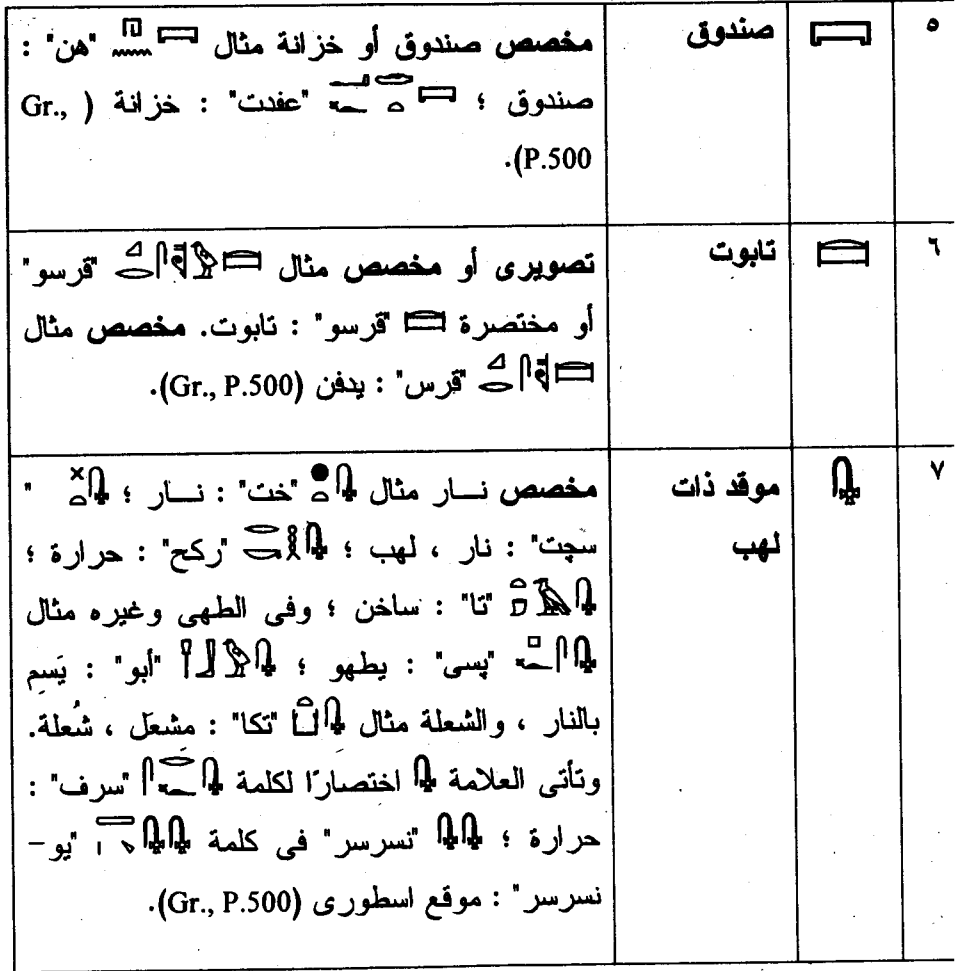 ٥
صندوق
مخصص صندوق أو خزانة مثال "هن" :
صندوق ؛ "عفدت" : خزانة (Gr.,
P.500).
٦
تابوت
تصويرى أو مخصص مثال "قرسو"
أو مختصرة "قرسو" : تابوت. مخصص مثال
"قرس" : يدفن (Gr., P.500).
٧
موقد ذات
لهب
مخصص نــار مثال "خت" : نــار ؛ "
سچت" : نار ، لهب ؛ "ركح" : حرارة ؛
"تا" : ساخن ؛ وفى الطهى وغيره مثال
"پسى" : يطهو ؛ "أبو" : يَسِم
بالنار ، والشعلة مثال "تكا" : مشعل ، شُعلة.
وتأتى العلامة اختصارًا لكلمة "سرف" :
حرارة ؛ "نسرسر" فى كلمة "يو-
نسرسر" : موقع اسطورى (Gr., P.500).